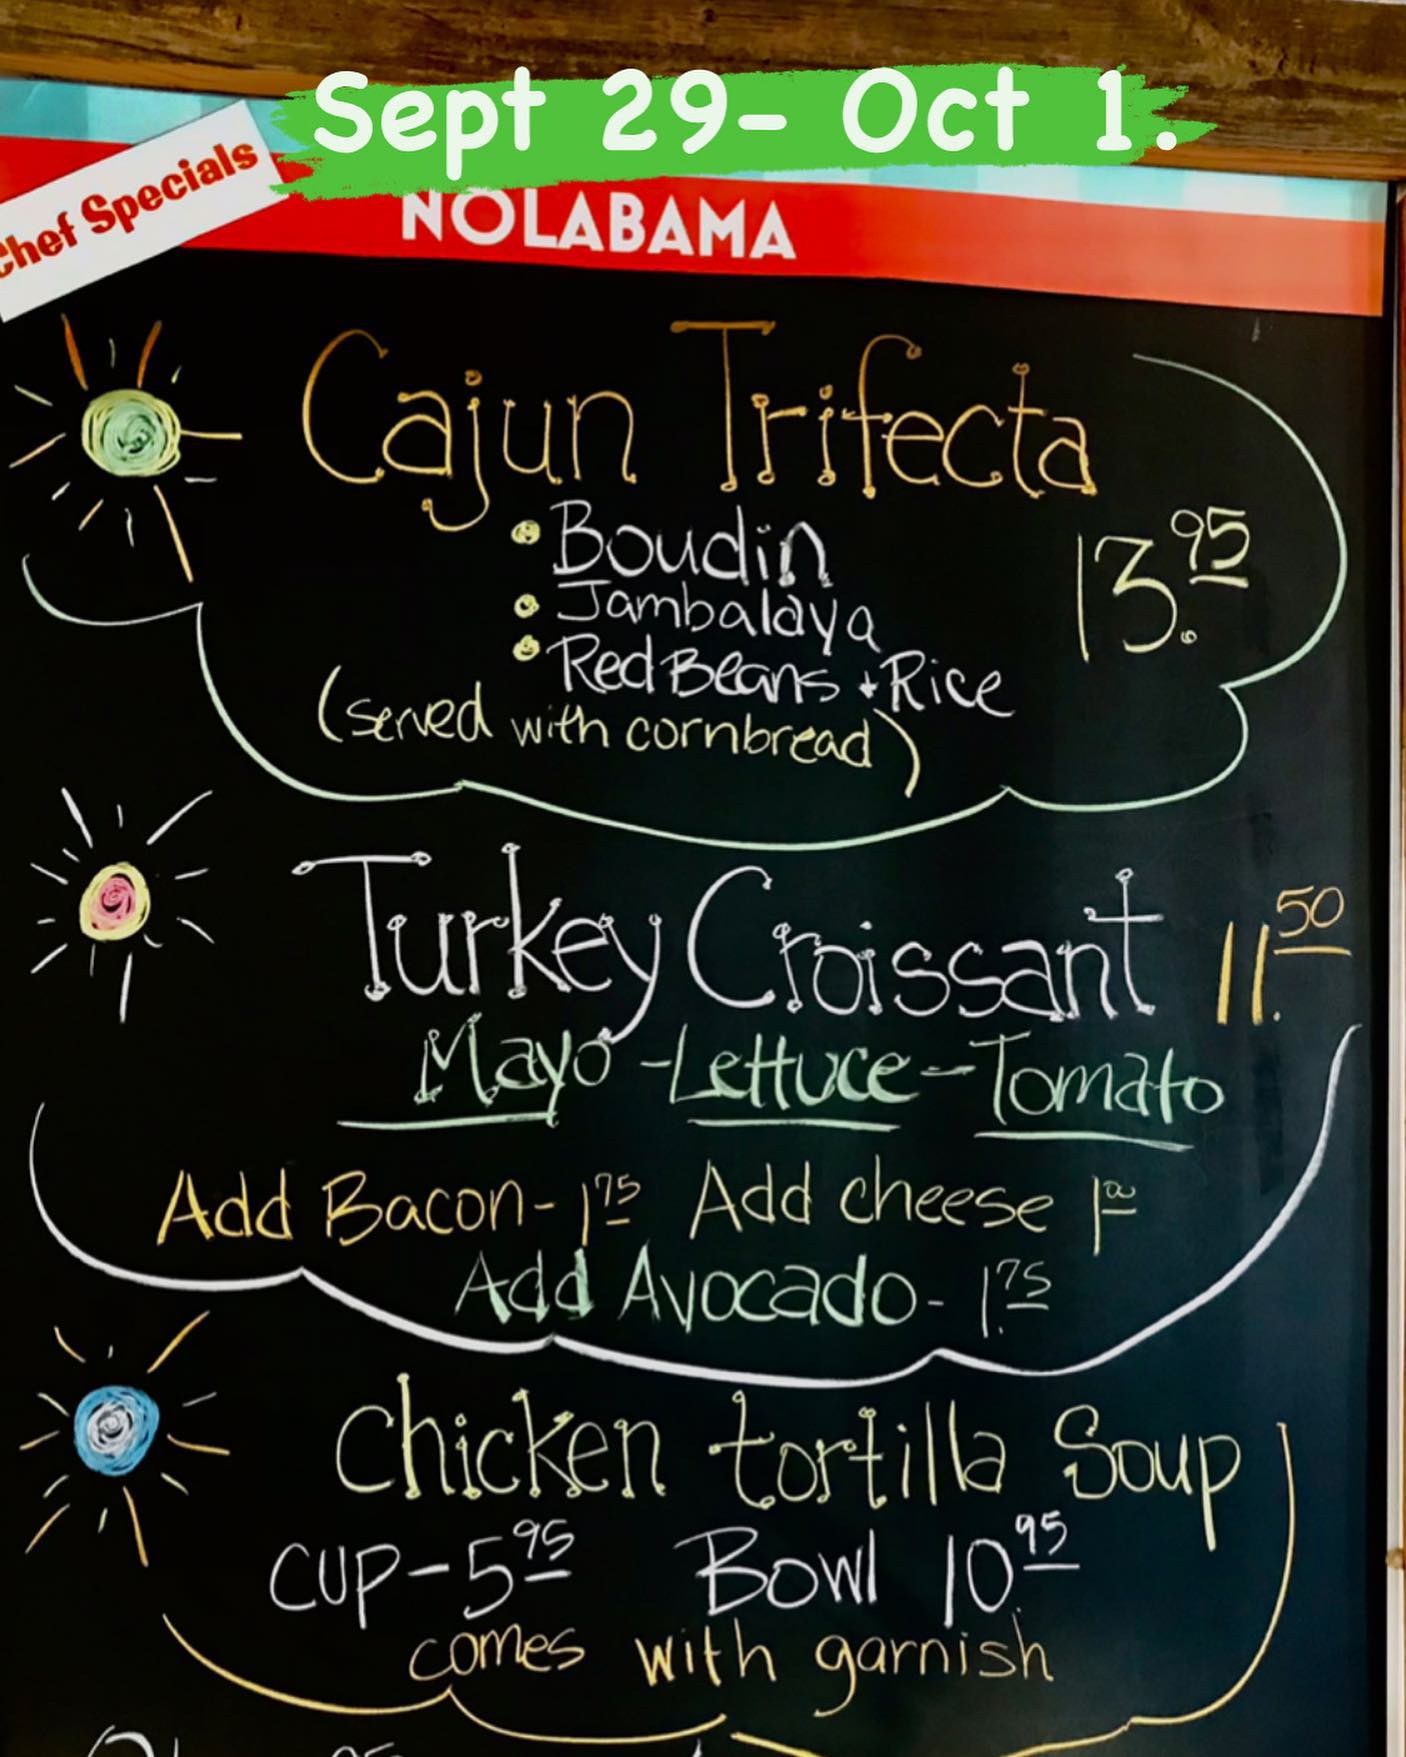 Sept 29- Oct 1.
Chef Specials
NOLABAMA
Cajun Trifecta
• Boudin
13.95
• Jambalaya
• Red Beans + Rice
(served with cornbread)
Turkey Croissant 11.50
Mayo - Lettuce - Tomato
Add Bacon- 1.75 Add cheese 1.00
Add Avocado- 1.75
Chicken tortilla Soup
CUP-5.95 Bowl 10.95
comes with garnish